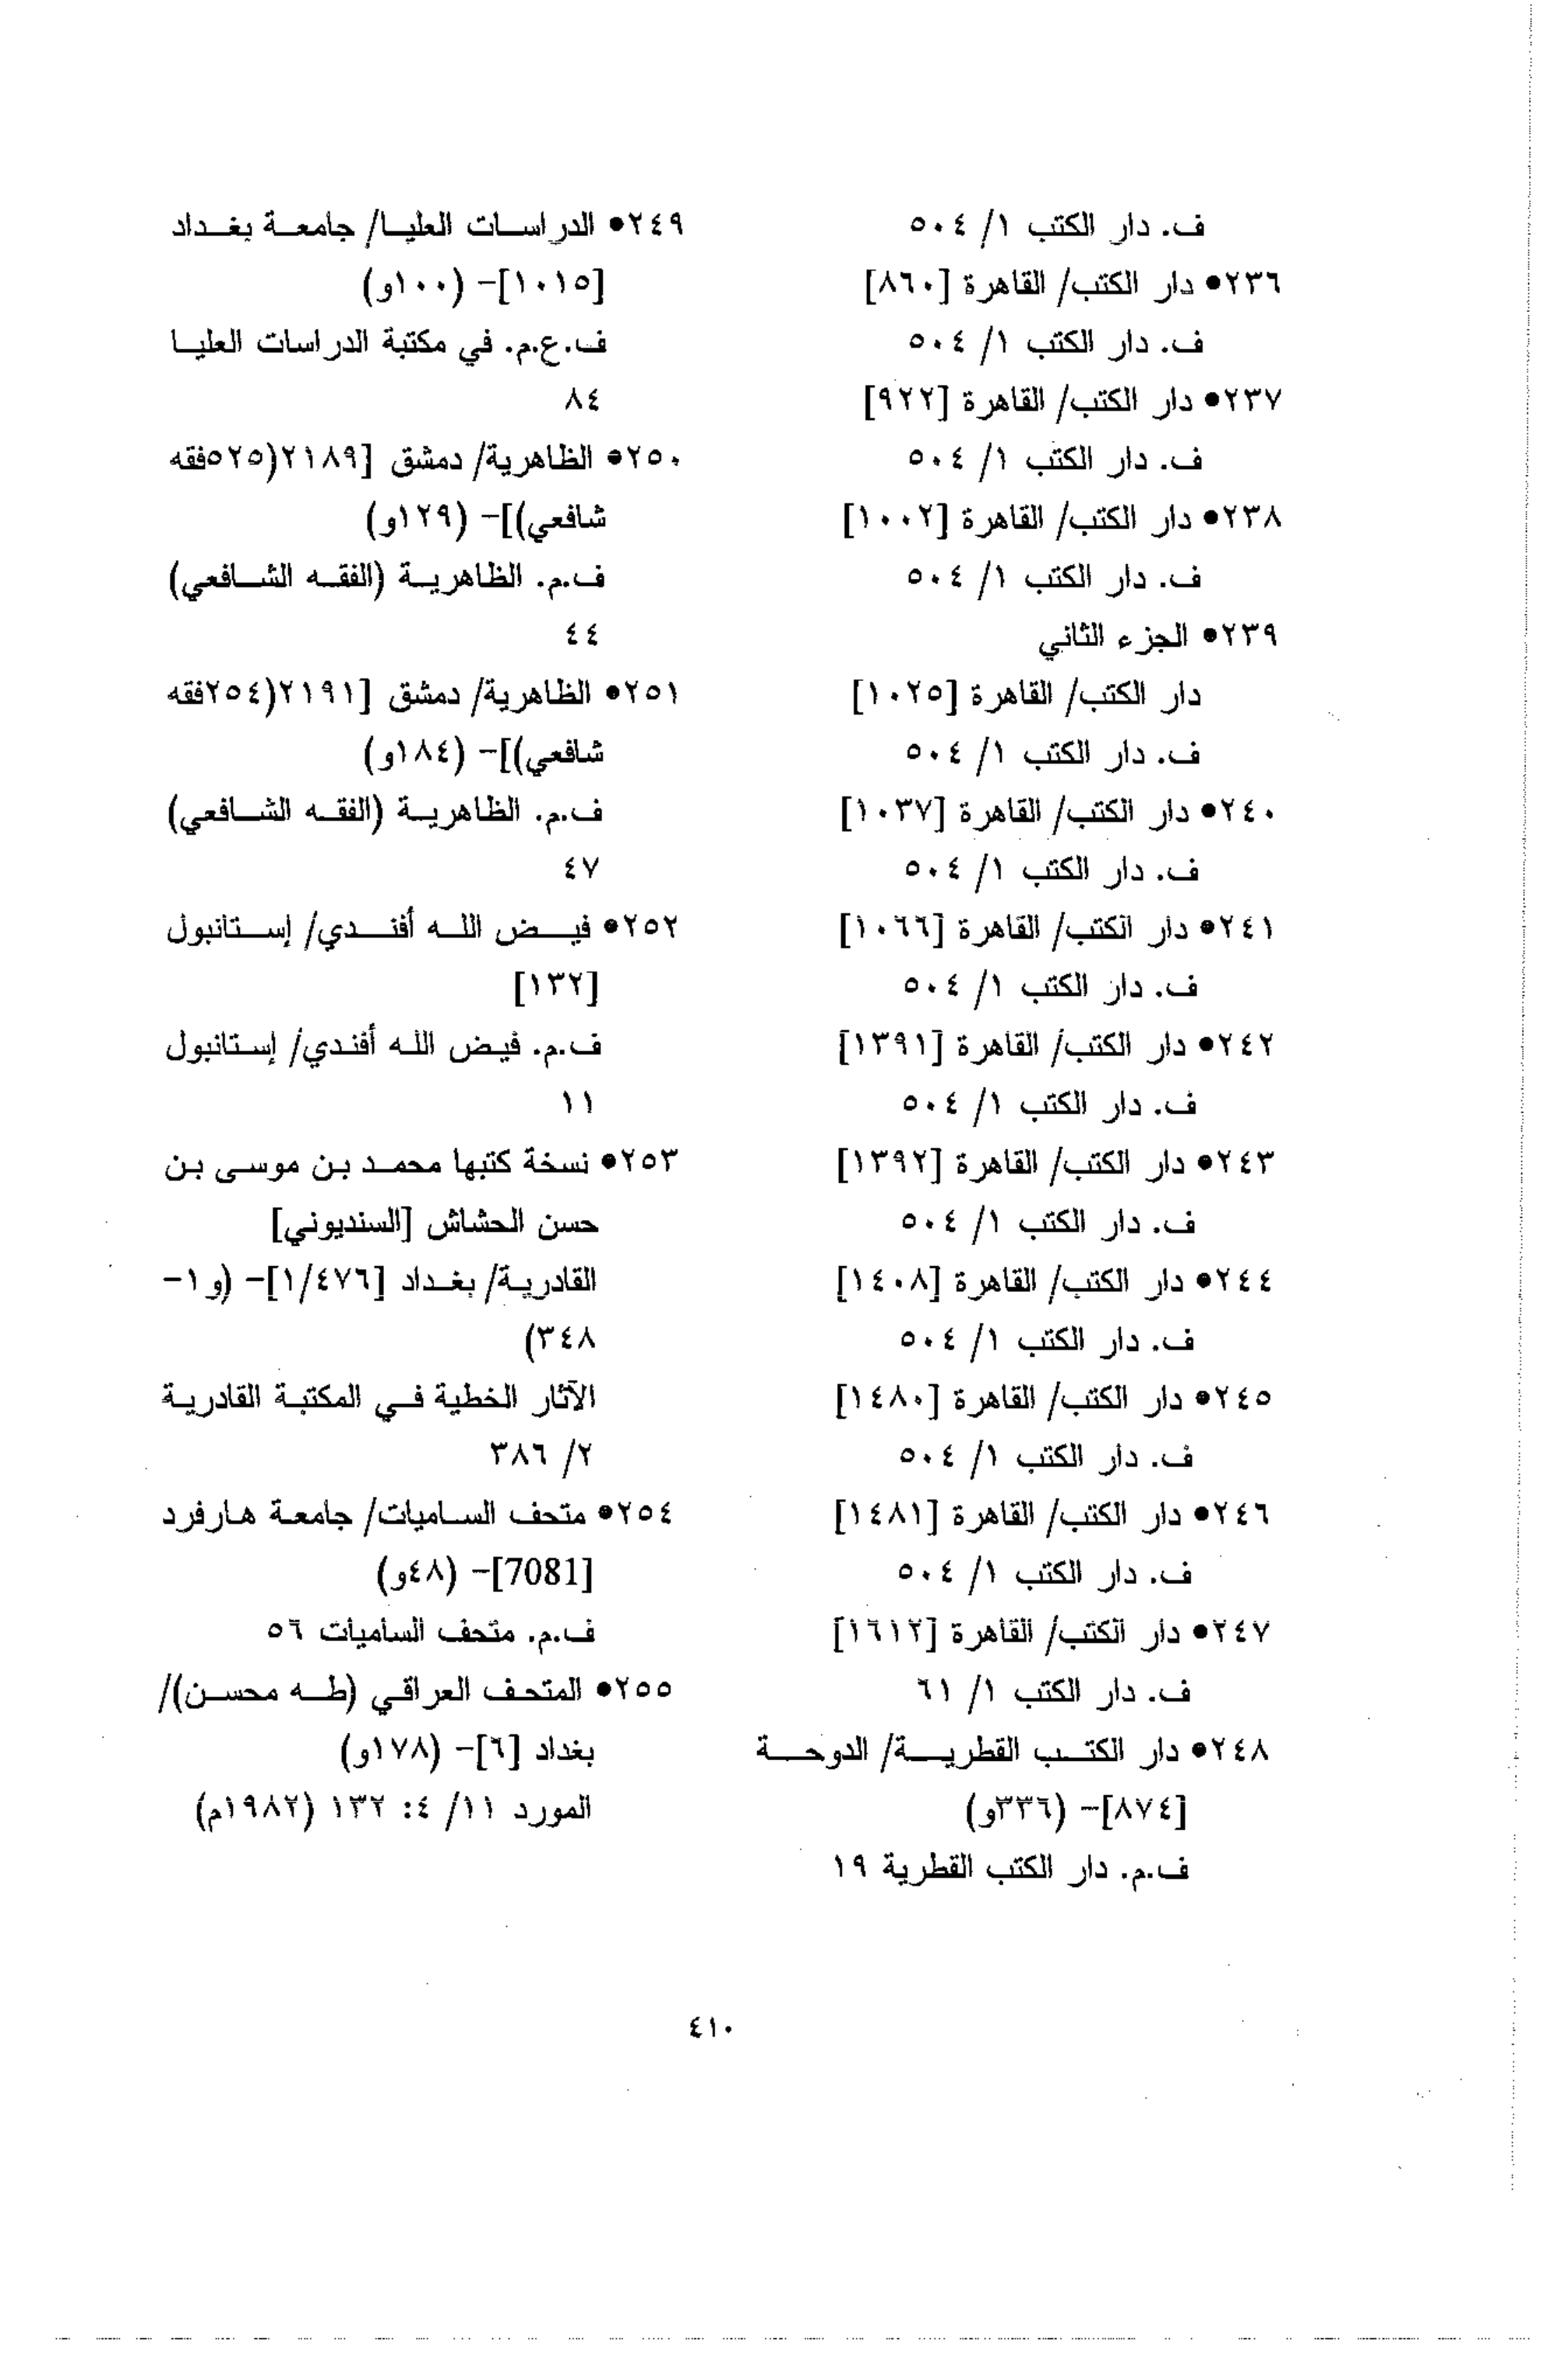 ف. دار الكتب ١/ ٥٠٤
٢٣٦• دار الكتب/ القاهرة [٨٦٠]
ف. دار الكتب ١/ ٥٠٤
٢٣٧• دار الكتب/ القاهرة [٩٢٢]
ف. دار الكتب ١/ ٥٠٤
٢٣٨• دار الكتب/ القاهرة [١٠٠٢]
ف. دار الكتب ١/ ٥٠٤
٢٣٩• الجزء الثاني
دار الكتب/ القاهرة [١٠٢٥]
ف. دار الكتب ١/ ٥٠٤
٢٤٠• دار الكتب/ القاهرة [١٠٣٧]
ف. دار الكتب ١/ ٥٠٤
٢٤١• دار الكتب/ القاهرة [١٠٦٦]
ف. دار الكتب ١/ ٥٠٤
٢٤٢• دار الكتب/ القاهرة [١٣٩١]
ف. دار الكتب ١/ ٥٠٤
٢٤٣• دار الكتب/ القاهرة [١٣٩٢]
ف. دار الكتب ١/ ٥٠٤
٢٤٤• دار الكتب/ القاهرة [١٤٠٨]
ف. دار الكتب ١/ ٥٠٤
٢٤٥• دار الكتب/ القاهرة [١٤٨٠]
ف. دار الكتب ١/ ٥٠٤
٢٤٦• دار الكتب/ القاهرة [١٤٨١]
ف. دار الكتب ١/ ٥٠٤
٢٤٧• دار الكتب/ القاهرة [١٦١٢]
ف. دار الكتب ١/ ٦١
٢٤٨• دار الكتب القطرية/ الدوحة
[٨٧٤]- (٣٣٦و)
ف.م. دار الكتب القطرية ١٩
٢٤٩• الدراسات العليا/ جامعة بغداد
[١٠١٥]- (١٠٠و)
ف.ع.م. في مكتبة الدراسات العليا
٨٤
٢٥٠• الظاهرية/ دمشق [٢١٨٩(٥٢٥فقه
شافعي)]- (١٢٩و)
ف.م. الظاهرية (الفقه الشافعي)
٤٤
٢٥١• الظاهرية/ دمشق [٢١٩١(٢٥٤فقه
شافعي)]- (١٨٤و)
ف.م. الظاهرية (الفقه الشافعي)
٤٧
٢٥٢• فيض الله أفندي/ إستانبول
[١٣٢]
ف.م. فيض الله أفندي/ إستانبول
١١
٢٥٣• نسخة كتبها محمد بن موسى بن
حسن الحشاش [السنديوني]
القادرية/ بغداد [١/٤٧٦]- (و ١-
٣٤٨)
الآثار الخطية في المكتبة القادرية
٢/ ٣٨٦
٢٥٤• متحف الساميات/ جامعة هارفرد
[7081]- (٤٨و)
ف.م. متحف الساميات ٥٦
٢٥٥• المتحف العراقي (طه محسن)/
بغداد [٦]- (١٧٨و)
المورد ١١/ ٤: ١٣٢ (١٩٨٢م)
٤١٠